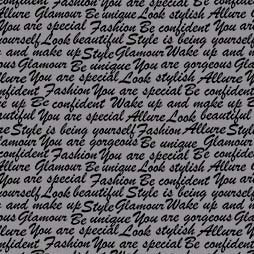 confident Fashion You are special Be confident
Allure Glamour Be unique Look stylish Allure
You are special Look beautiful Style
Yourself Look beautiful Style is being yourself
and make up Style Glamour Wake up and
Glamour Be unique You are gorgeous Glamour
Allure You are special Look stylish Allure
confident Fashion You are special Be confident
up Be confident Wake up and make up Be
You are special Allure Look beautiful
Style is being yourself Fashion Allure Style
Glamour You are gorgeous Be unique Glamour
confident Fashion You are special Be confident
Allure Glamour Be unique Look stylish Allure
You are special Be confident You are
yourself Look beautiful Style is being yourself
and make up Style Glamour Wake up and
Glamour Be unique You are gorgeous
Allure You are special Look stylish Allure
confident Fashion You are special Be confident